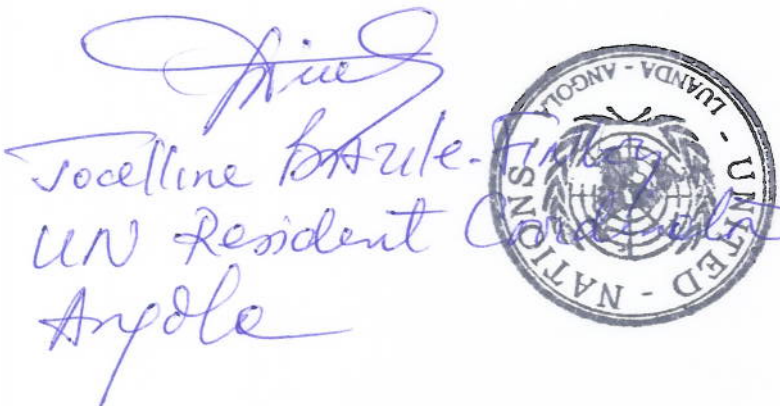 Jocelline BAzile-Finley
UN Resident Coordinator
Angola
UNITED - NATIONS - LUANDA - ANGOLA